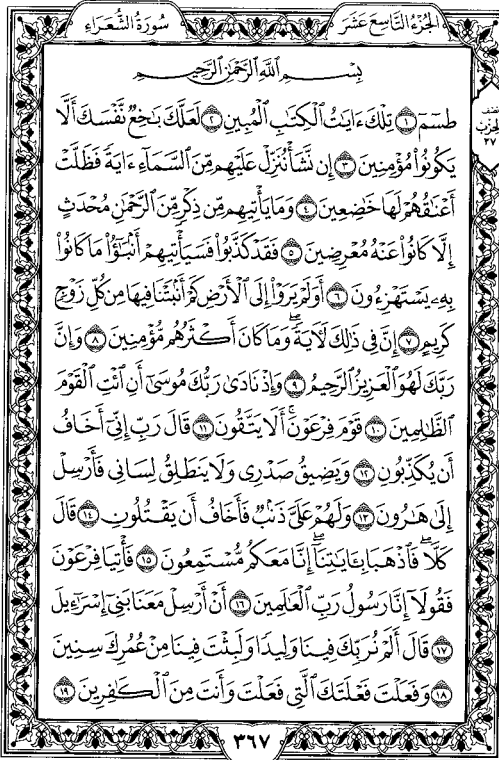 الجزء التاسع عشر
سورة الشعراء
نصف الحزب ٣٧
بِسْمِ ٱللَّهِ ٱلرَّحْمَٰنِ ٱلرَّحِيمِ
طسٓمٓ ١ تِلْكَ ءَايَٰتُ ٱلْكِتَٰبِ ٱلْمُبِينِ ٢ لَعَلَّكَ بَٰخِعٌ نَّفْسَكَ أَلَّا
يَكُونُوا۟ مُؤْمِنِينَ ٣ إِن نَّشَأْ نُنَزِّلْ عَلَيْهِم مِّنَ ٱلسَّمَآءِ ءَايَةً فَظَلَّتْ
أَعْنَٰقُهُمْ لَهَا خَٰضِعِينَ ٤ وَمَا يَأْتِيهِم مِّن ذِكْرٍ مِّنَ ٱلرَّحْمَٰنِ مُحْدَثٍ
إِلَّا كَانُوا۟ عَنْهُ مُعْرِضِينَ ٥ فَقَدْ كَذَّبُوا۟ فَسَيَأْتِيهِمْ أَنۢبَٰٓؤُا۟ مَا كَانُوا۟
بِهِۦ يَسْتَهْزِءُونَ ٦ أَوَلَمْ يَرَوْا۟ إِلَى ٱلْأَرْضِ كَمْ أَنۢبَتْنَا فِيهَا مِن كُلِّ زَوْجٍ
كَرِيمٍ ٧ إِنَّ فِى ذَٰلِكَ لَءَايَةً ۖ وَمَا كَانَ أَكْثَرُهُم مُّؤْمِنِينَ ٨ وَإِنَّ
رَبَّكَ لَهُوَ ٱلْعَزِيزُ ٱلرَّحِيمُ ٩ وَإِذْ نَادَىٰ رَبُّكَ مُوسَىٰٓ أَنِ ٱئْتِ ٱلْقَوْمَ
ٱلظَّٰلِمِينَ ١٠ قَوْمَ فِرْعَوْنَ ۚ أَلَا يَتَّقُونَ ١١ قَالَ رَبِّ إِنِّىٓ أَخَافُ
أَن يُكَذِّبُونِ ١٢ وَيَضِيقُ صَدْرِى وَلَا يَنطَلِقُ لِسَانِى فَأَرْسِلْ
إِلَىٰ هَٰرُونَ ١٣ وَلَهُمْ عَلَىَّ ذَنۢبٌ فَأَخَافُ أَن يَقْتُلُونِ ١٤ قَالَ
كَلَّا ۖ فَٱذْهَبَا بِـَٔايَٰتِنَآ ۖ إِنَّا مَعَكُم مُّسْتَمِعُونَ ١٥ فَأْتِيَا فِرْعَوْنَ
فَقُولَآ إِنَّا رَسُولُ رَبِّ ٱلْعَٰلَمِينَ ١٦ أَنْ أَرْسِلْ مَعَنَا بَنِىٓ إِسْرَٰٓءِيلَ
١٧ قَالَ أَلَمْ نُرَبِّكَ فِينَا وَلِيدًا وَلَبِثْتَ فِينَا مِنْ عُمُرِكَ سِنِينَ
١٨ وَفَعَلْتَ فَعْلَتَكَ ٱلَّتِى فَعَلْتَ وَأَنتَ مِنَ ٱلْكَٰفِرِينَ ١٩
٣٦٧